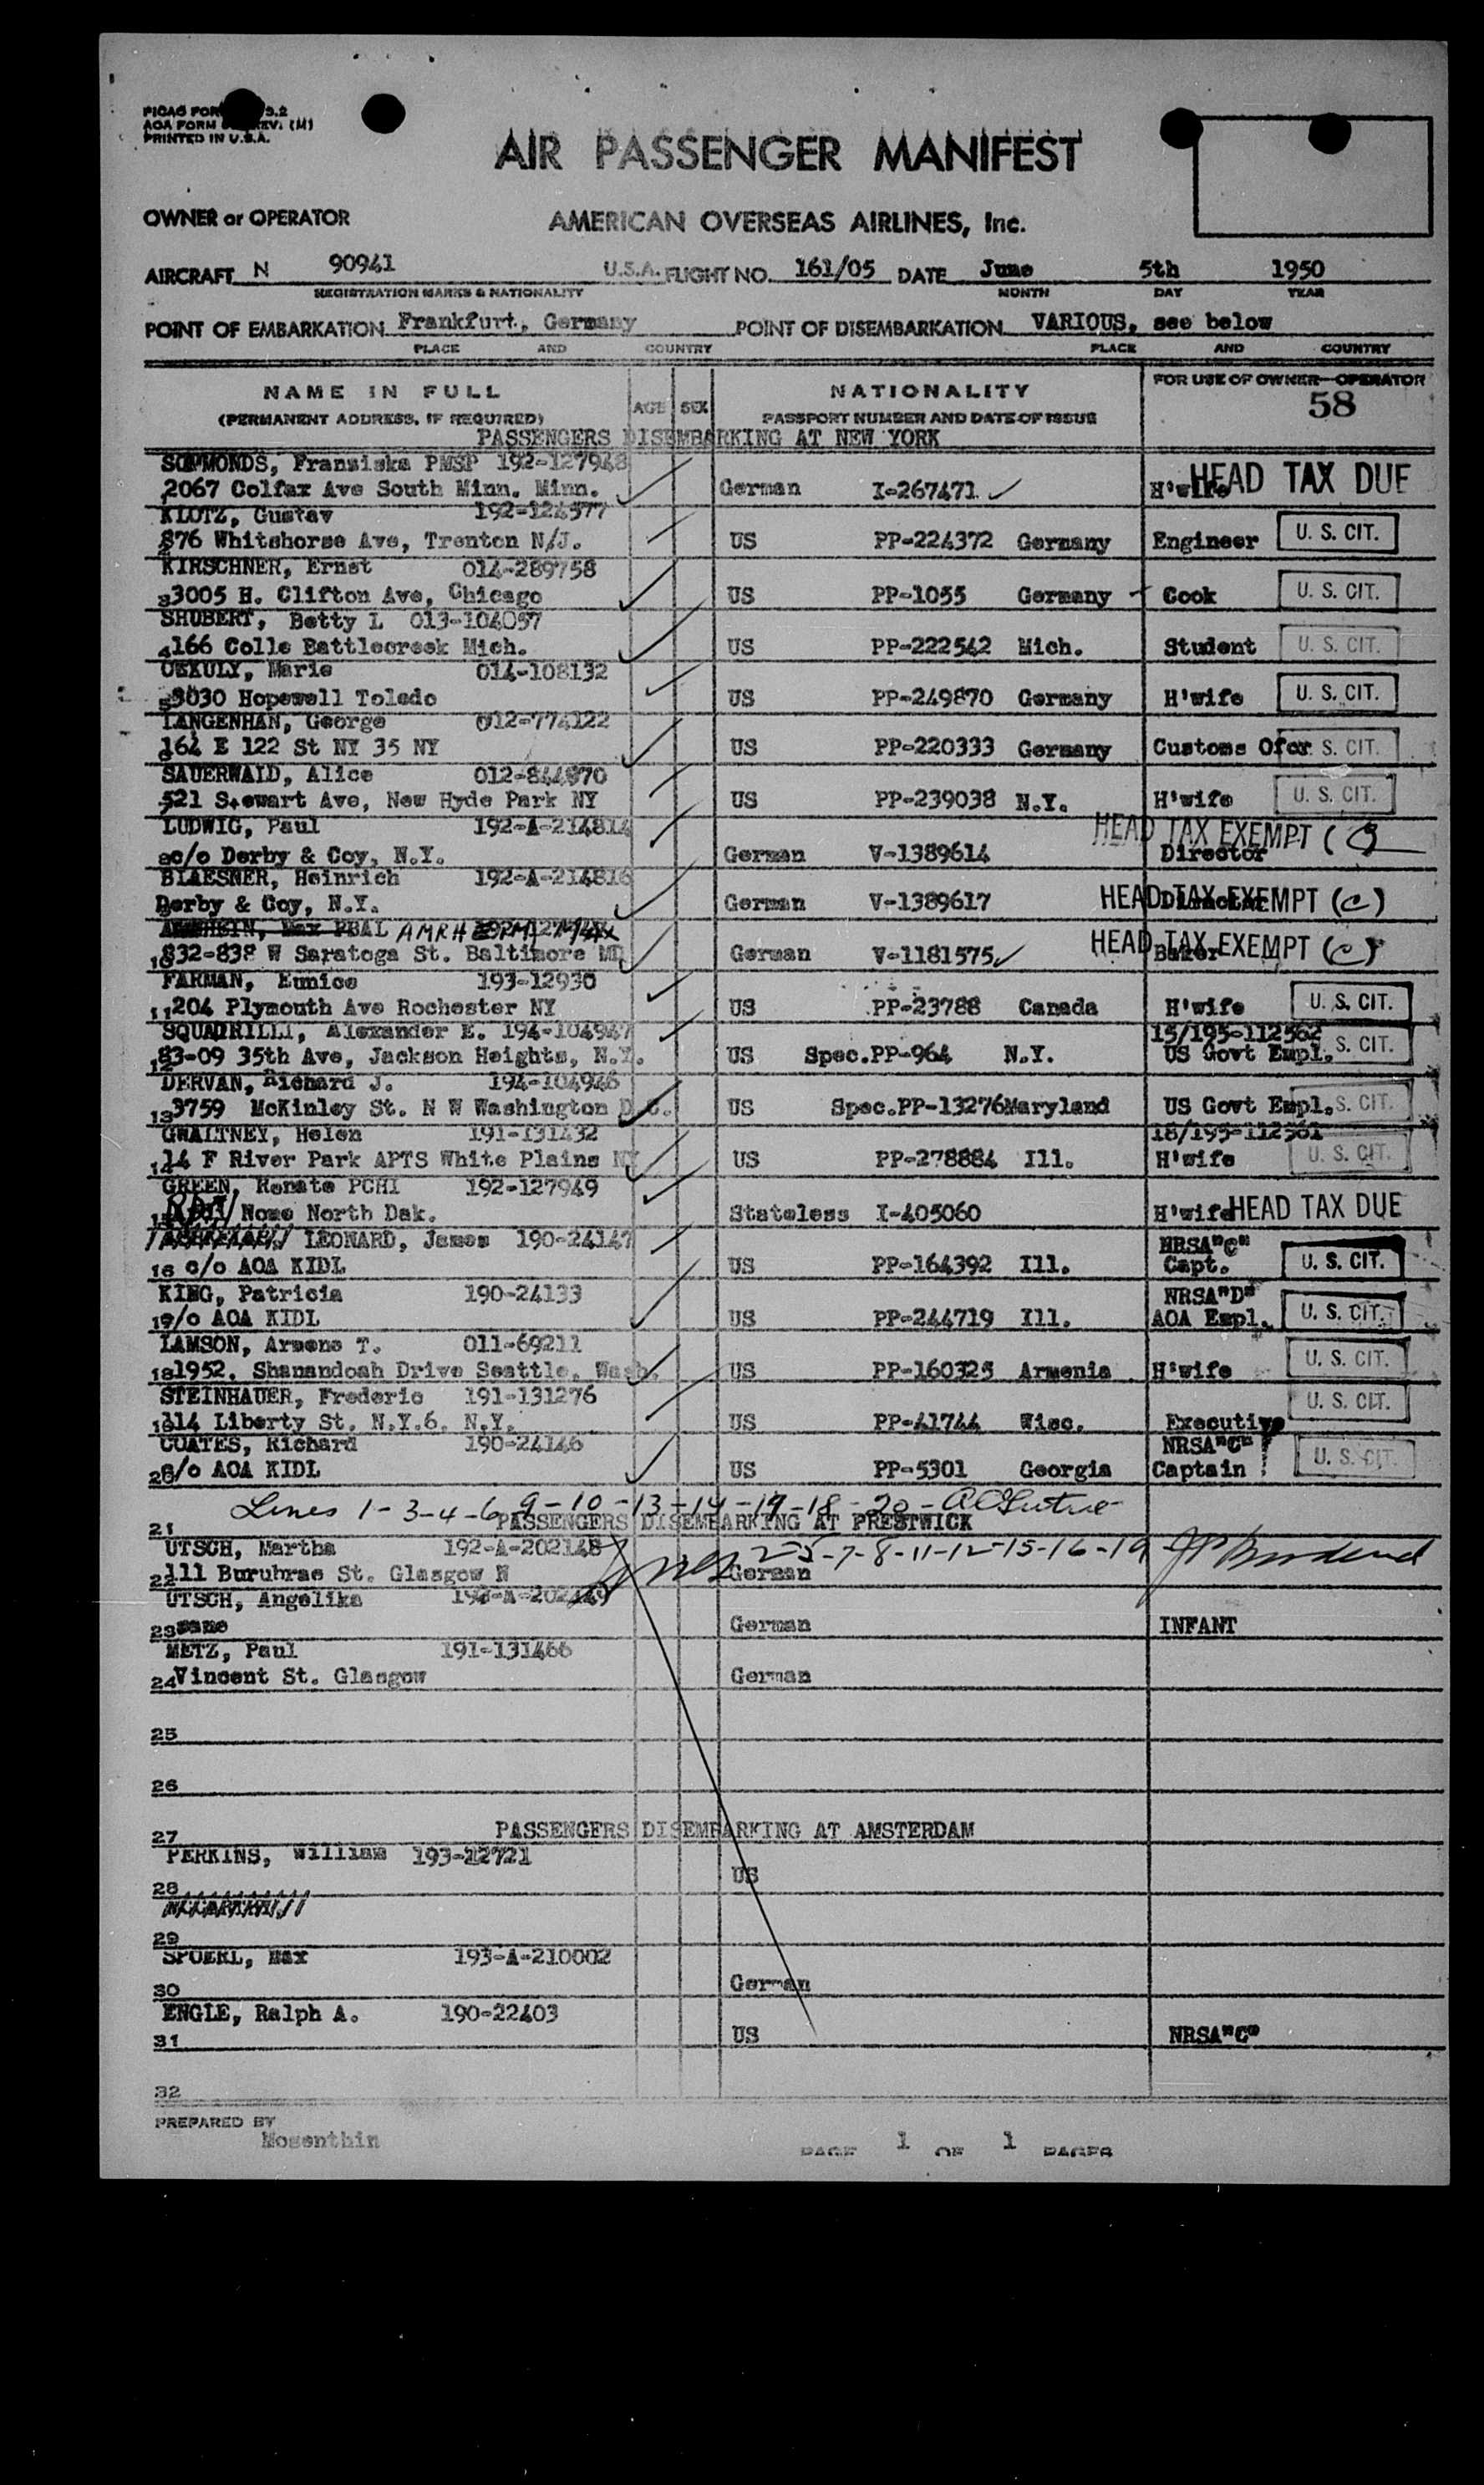 AIR PASSENGER MANIFEST
PRINTED IN U.S.A.
OWNER or OPERATOR AMERICAN OVERSEAS AIRLINES, Inc.
AIRCRAFT N 90941 U.S.A. FLIGHT NO. 161/05 DATE June 5th 1950
REGISTRATION MARKS & NATIONALITY MONTH DAY YEAR
POINT OF EMBARKATION Frankfurt, Germany POINT OF DISEMBARKATION VARIOUS, see below
PLACE AND COUNTRY PLACE AND COUNTRY
NAME IN FULL AGE SEX NATIONALITY FOR USE OF OWNER-OPERATOR
(PERMANENT ADDRESS, IF REQUIRED) PASSPORT NUMBER AND DATE OF ISSUE 58
PASSENGERS DISEMBARKING AT NEW YORK
SOMMONDS, Franziska PMSP 192-127948
2067 Colfax Ave South Minn. Minn. German I-267471 H'wife HEAD TAX DUE
KLOTZ, Gustav 192-124577
876 Whitehorse Ave, Trenton N/J. US PP-224372 Germany Engineer U. S. CIT.
KIRSCHNER, Ernst 014-289758
3 3005 H. Clifton Ave, Chicago US PP-1055 Germany Cook U. S. CIT.
SHUBERT, Betty L 013-104057
4 166 Colle Battlecreek Mich. US PP-222542 Mich. Student U. S. CIT.
Marie 014-108132
5 3030 Hopewell Toledo US PP-249870 Germany H'wife U. S. CIT.
LANGENHAN, George 012-774122
164 E 122 St NY 35 NY US PP-220333 Germany Customs Ofcr S. CIT.
SAUERWALD, Alice 012-844870
521 Stewart Ave, New Hyde Park NY US PP-239038 N.Y. H'wife U. S. CIT.
LUDWIG, Paul 192-A-214814 HEAD TAX EXEMPT (
8 c/o Derby & Coy, N.Y. German V-1389614 Director
BLAESNER, Heinrich 192-A-214816
Derby & Coy, N.Y. German V-1389617 Director HEAD TAX EXEMPT (C)
PBAL AMRHEIN
10 832-838 W Saratoga St. Baltimore MD German V-1181575 Baker HEAD TAX EXEMPT (C)
FARMAN, Eunice 193-12930
11 204 Plymouth Ave Rochester NY US PP-23788 Canada H'wife U. S. CIT.
SQUADRILLI, Alexander E. 194-104947 15/195-112562
12 83-09 35th Ave, Jackson Heights, N.Y. US Spec.PP-964 N.Y. US Govt Empl. S. CIT.
DERVAN, Richard J. 194-104946
13 3759 McKinley St. N W Washington D.C. US Spec.PP-13276 Maryland US Govt Empl. S. CIT.
GWALTNEY, Helen 191-131432 18/195-112561
14 F River Park APTS White Plains NY US PP-278884 Ill. H'wife U. S. CIT.
GREEN, Renate PCHI 192-127949
Nome North Dak. Stateless I-405060 H'wife HEAD TAX DUE
LEONARD, James 190-24147 NRSA"C"
16 c/o AOA KIDL US PP-164392 Ill. Capt. U. S. CIT.
KING, Patricia 190-24133 NRSA"D"
c/o AOA KIDL US PP-244719 Ill. AOA Empl. U. S. CIT.
LAMSON, Armene T. 011-69211
18 1952. Shanandoah Drive Seattle, Wash. US PP-160325 Armenia H'wife U. S. CIT.
STEINHAUER, Frederic 191-131276
114 Liberty St. N.Y.6. N.Y. US PP-41744 Wisc. Executive U. S. CIT.
COATES, Richard 190-24146 NRSA"C"
20 c/o AOA KIDL US PP-5301 Georgia Captain U. S. CIT.
Lines 1-3-4-6-9-10-13-14-17-18-20-
21 PASSENGERS DISEMBARKING AT PRESTWICK
UTSCH, Martha 192-A-202148 Lines 2-5-7-8-11-12-15-16-19
22 111 Buruhrae St. Glasgow N German
UTSCH, Angelika 192-A-202149
23 same German INFANT
METZ, Paul 191-131466
24 Vincent St. Glasgow German
25
26
27 PASSENGERS DISEMBARKING AT AMSTERDAM
PERKINS, William 193-12721
28 US
29
SPOERL, Max 193-A-210002
30 German
ENGLE, Ralph A. 190-22403
31 US NRSA"C"
32
PREPARED BY
Mosenthin PAGE 1 OF 1 PAGES